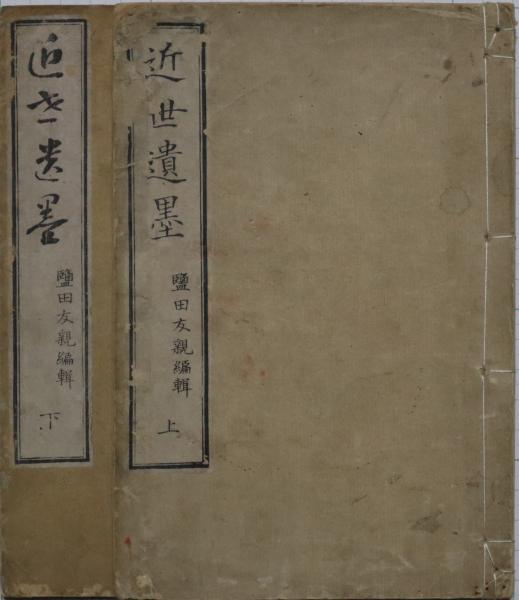 近世遺墨
鹽田友親編輯
上
近世遺墨
鹽田友親編輯
下